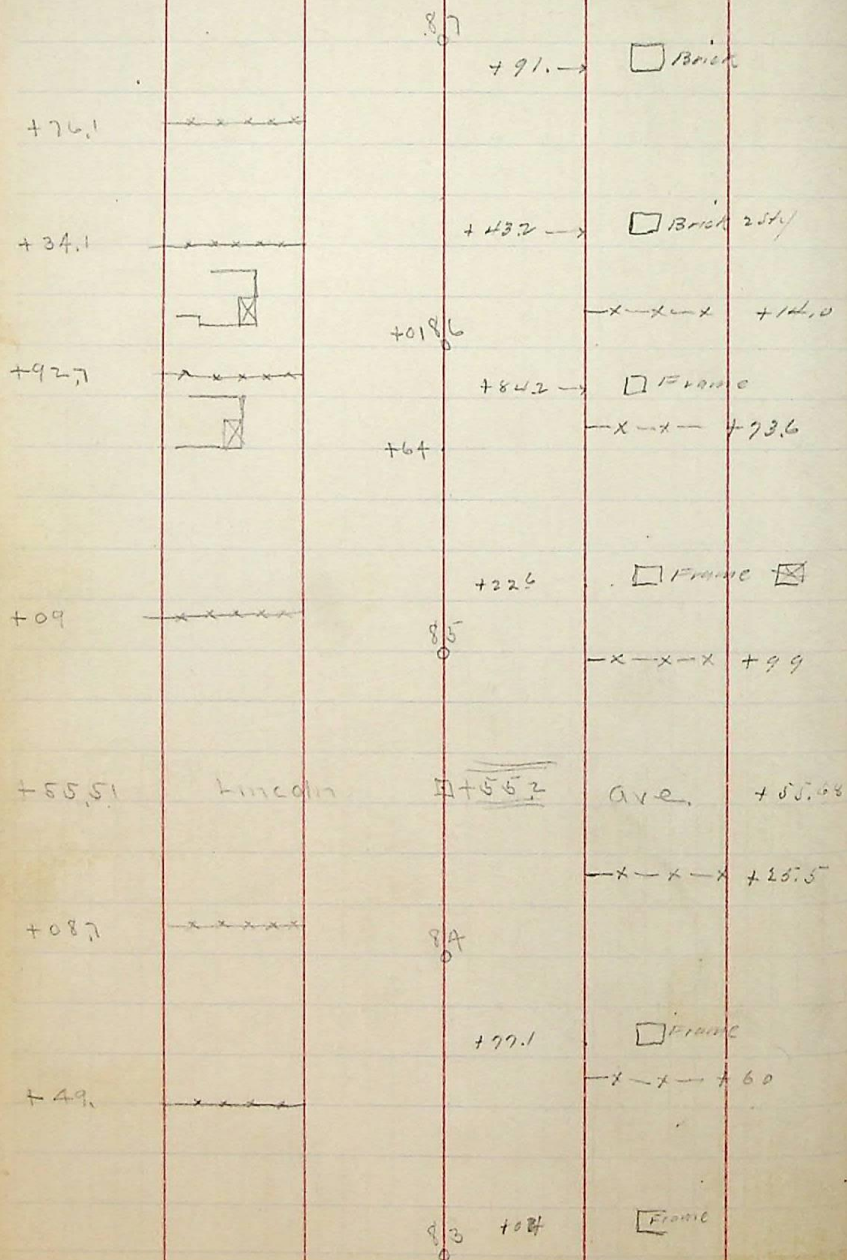 87
+91. Brick
+76.1
+43.2 Brick 2 Sty
+34.1
+14.0
+01 86
+92.7 +84.2 Frame
+73.6
+64
+22.6 Frame
+09
85
+99
+55.51 Lincoln +55.2 Ave. +55.68
+25.5
+08.7
84
+77.1 Frame
+60
+49.
83 Frame